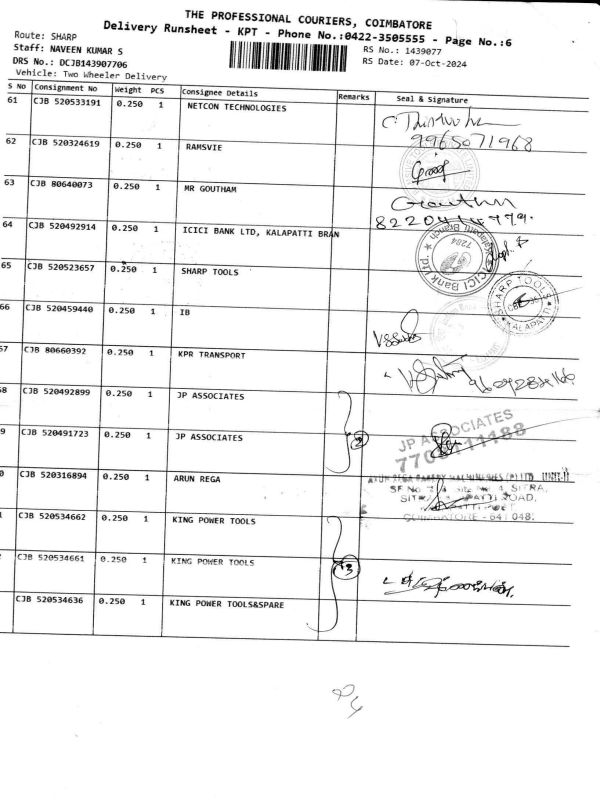 THE PROFESSIONAL COURIERS, COIMBATORE
Delivery Runsheet - KPT - Phone No.:0422-3505555 - Page No.:6
Route: SHARP
Staff: NAVEEN KUMAR S
RS No.: 1439077
DRS No.: DCJB143907706
RS Date: 07-Oct-2024
Vehicle: Two Wheeler Delivery
S No Consignment No Weight PCS Consignee Details Remarks Seal & Signature
61 CJB 520533191 0.250 1 NETCON TECHNOLOGIES
9965071968
62 CJB 520324619 0.250 1 RAMSVIE
63 CJB 80640073 0.250 1 MR GOUTHAM
Goutham
64 CJB 520492914 0.250 1 ICICI BANK LTD, KALAPATTI BRAN
ICICI Bank Ltd. Kalapatti Branch 7284
65 CJB 520523657 0.250 1 SHARP TOOLS
SHARP TOOLS KALAPATTI
66 CJB 520459440 0.250 1 IB
67 CJB 80660392 0.250 1 KPR TRANSPORT
68 CJB 520492899 0.250 1 JP ASSOCIATES
9 CJB 520491723 0.250 1 JP ASSOCIATES
2
JP ASSOCIATES
0 CJB 520316894 0.250 1 ARUN REGA
COIMBATORE - 641 048.
CJB 520534662 0.250 1 KING POWER TOOLS
CJB 520534661 0.250 1 KING POWER TOOLS
3
CJB 520534636 0.250 1 KING POWER TOOLS&SPARE